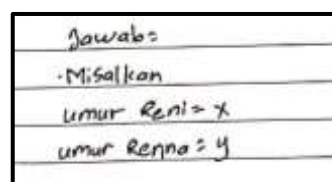 Jawab:
·Misalkan
umur Reni = x
umur Renna = y